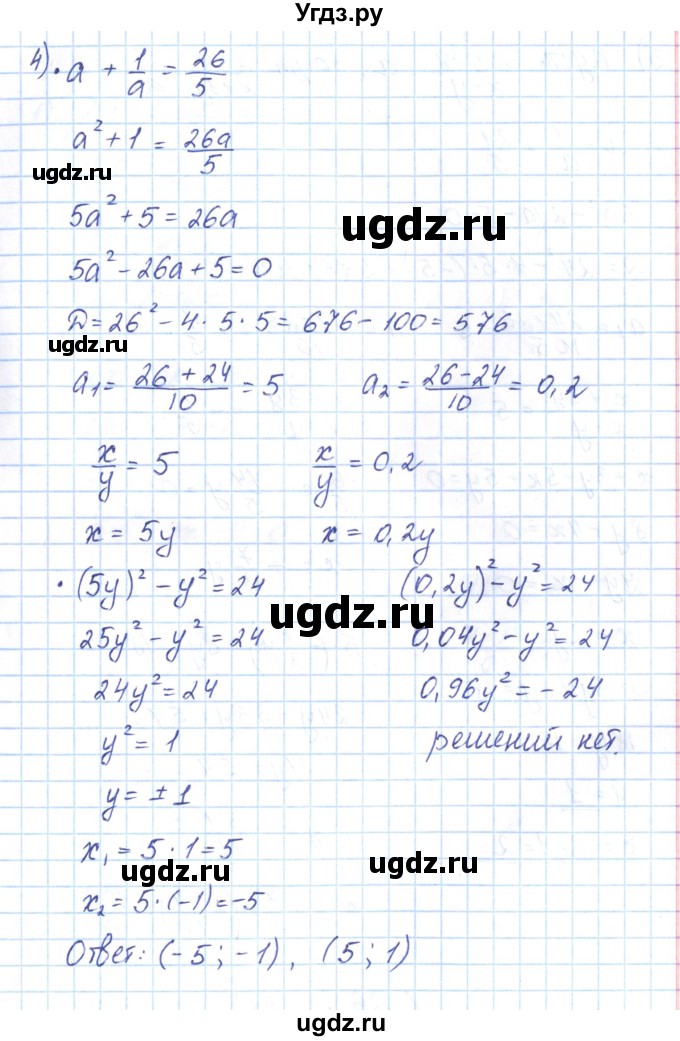 Угдз.ру
4) • a + 1/a = 26/5
a² + 1 = 26a/5
ugdz.ru
5a² + 5 = 26a
ugdz.ru
5a² - 26a + 5 = 0
D = 26² - 4 · 5 · 5 = 676 - 100 = 576
ugdz.ru
a₁ = (26 + 24)/10 = 5 a₂ = (26 - 24)/10 = 0,2
x/y = 5 x/y = 0,2
x = 5y x = 0,2y
• (5y)² - y² = 24 (0,2y)² - y² = 24
ugdz.ru
25y² - y² = 24 0,04y² - y² = 24
24y² = 24 0,96y² = - 24
y² = 1 решений нет.
y = ± 1
x₁ = 5 · 1 = 5
ugdz.ru ugdz.ru
x₂ = 5 · (-1) = -5
Ответ: (-5; -1), (5; 1)
ugdz.ru